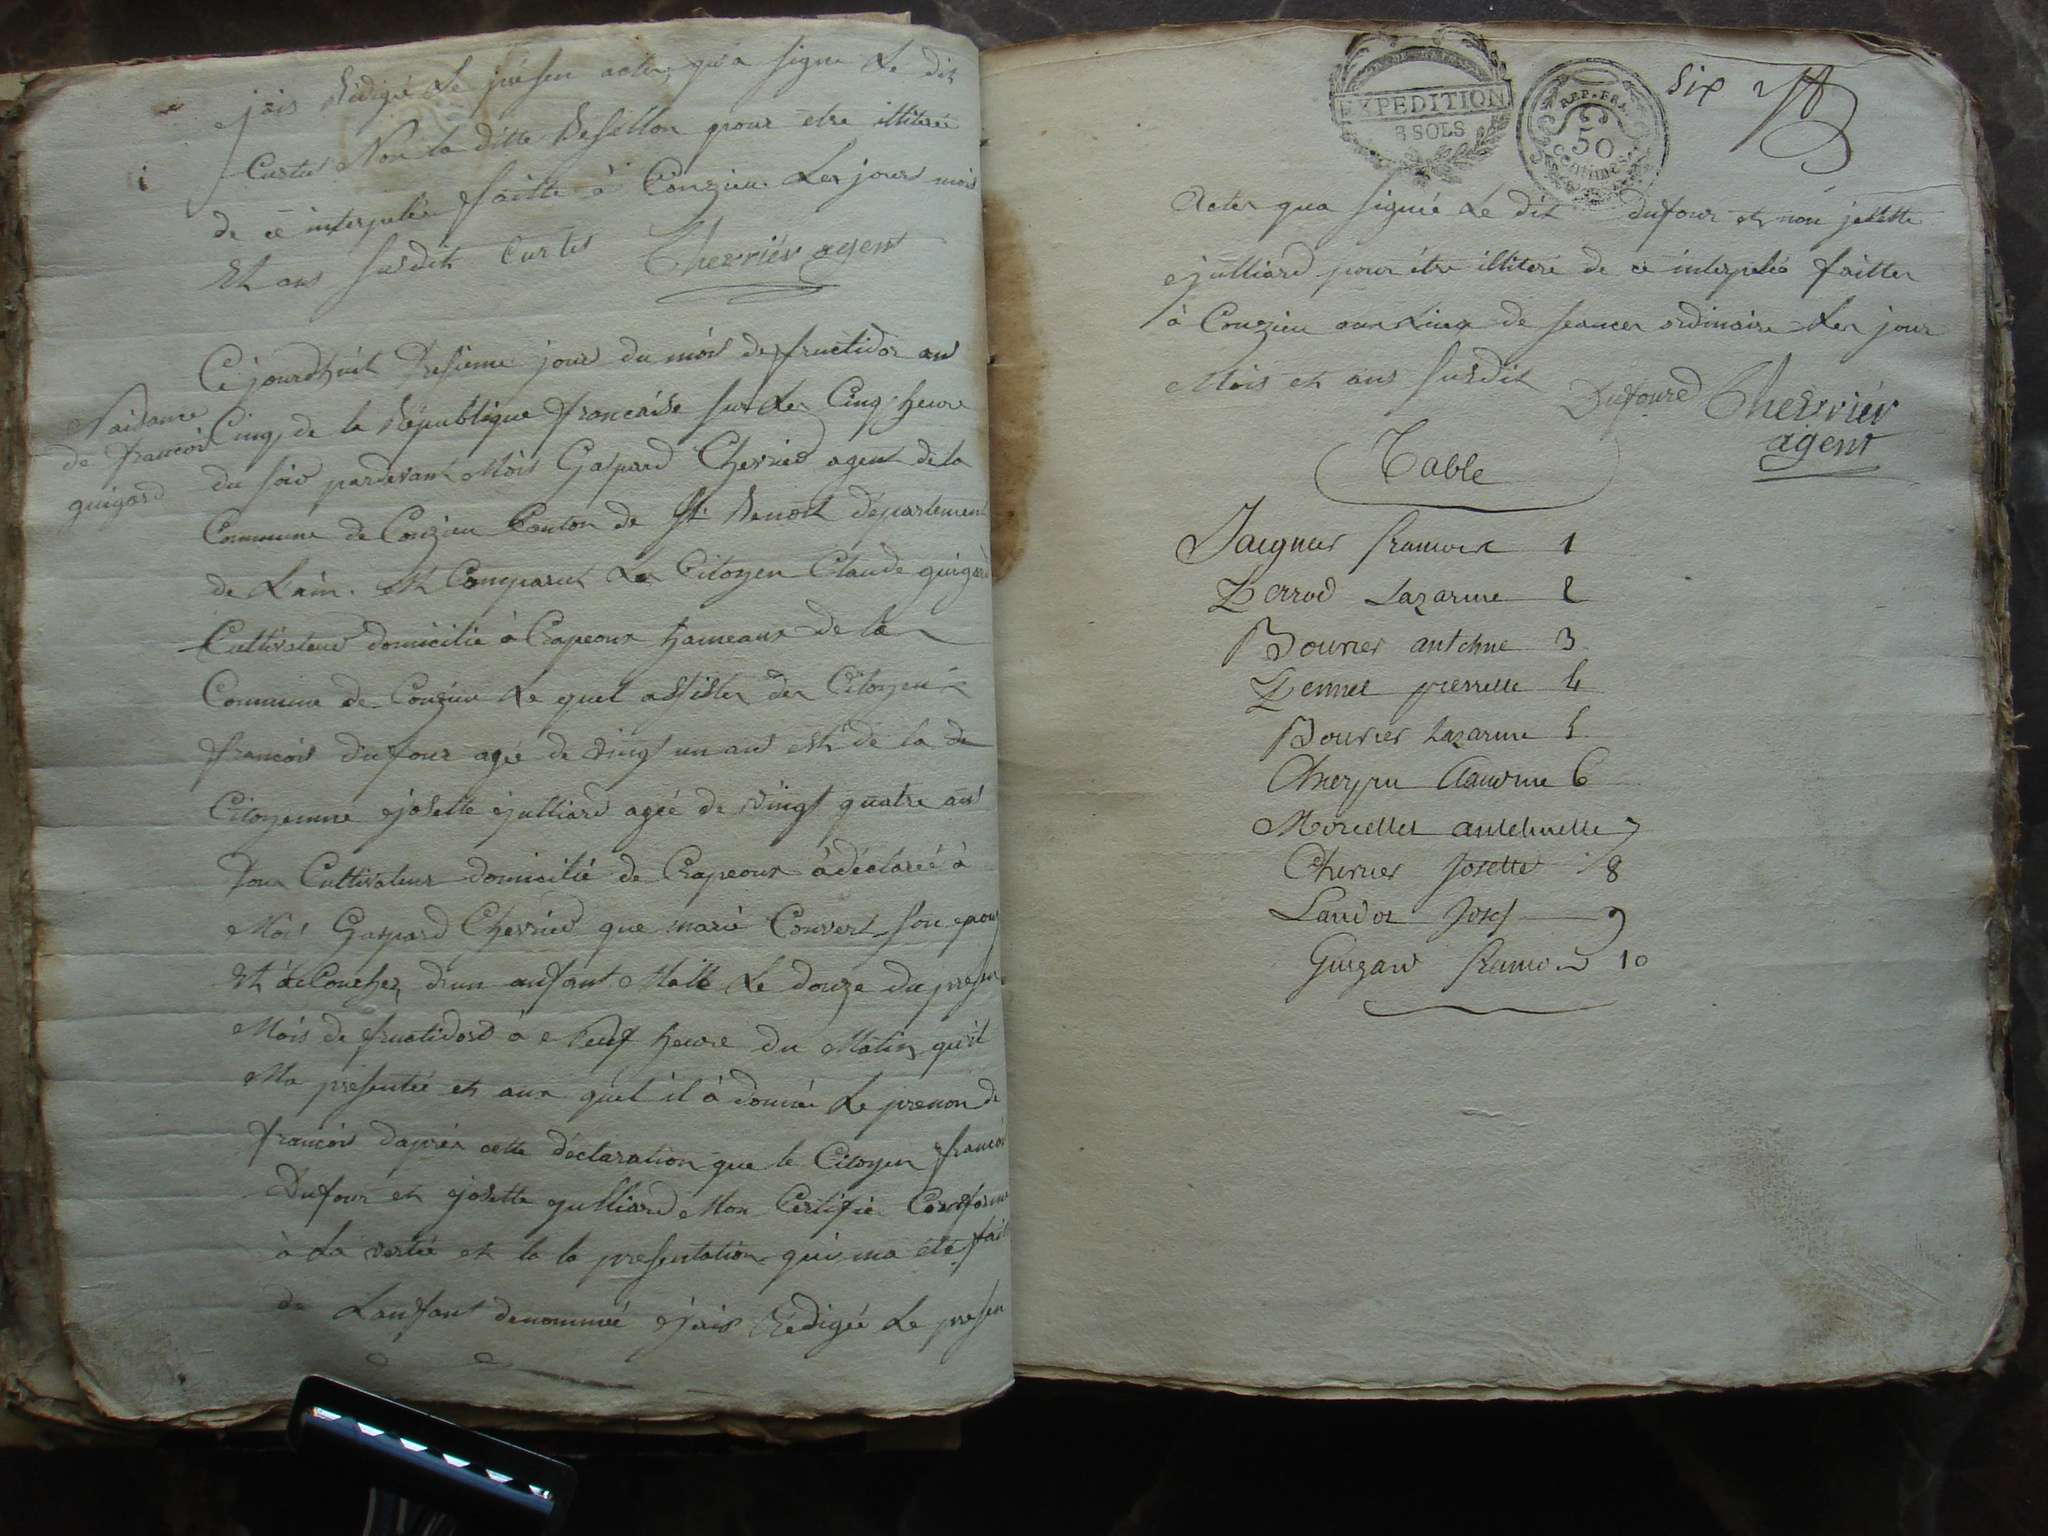 ejais Rédigé Le présen acte, qu'a signe Le dit
Curtet Non la ditte Besillon pour etre illiterée
de ce interpelée faitte à Conzieu Les jour mois
Et ans susdit Curtet Chevriér agent
Naisance
de françois
guigard
Ce jourdhuit Tresieme jour du mois de fructidor an
Cinq, de la République francaise sur Les Cinq heure
du soir pardevant Mois Gaspard Chevrier agent de la
Commune de Conzieu Canton de St. Benoit département
de Lain. Et Comparut Le Citoyen Claude guigard
Cultivateur domicilié à Crapeoux hameaux de la
Commune de Conzieu Le quel assister des Citoyen
françois dufour agée de vingt un ans et de la de
Citoyenne ejosette ejulliard agée de vingt quatre ans
Tous Cultivateur domicilié de Crapeoux à déclarée à
Moi Gaspard Chevrier que marie Convert son epous
Et àccoucher, d'un anfant Malle Le douze du presen
Mois de fructidord à Neuf heure du Matin, qu'il
Ma presentée et aux quel il à donnée Le prenon de
françois daprés cette déclaration que le Citoyen françoi
Dufour et ejosette ejulliard Mon Certifié Conforme
à La vertée et la la presentation qui ma été faite
de Lanfant denommée ejais Rédigée Le presen
EXPEDITION
3 SOLS
REP. FRA.
50
Centimes
Six
Actes qua signée Le dit dufour et non josette
ejulliard pour étre illiteré de ce interpelée faitte
à Conzieu aux Lieux de seances ordinaire Les jour
Mois et ans susdit Dufourd Chevriér
agent
Table
Jacquet francois 1
Perrod Lazarine 2
Bouvier antoine 3
Pennet pierrette 4
Bouvier Lazarine 5
Cheyzu Claudine 6
Morcellet antoinette 7
Chevrier Josette 8
Laudot Josef 9
Guigard francois 10